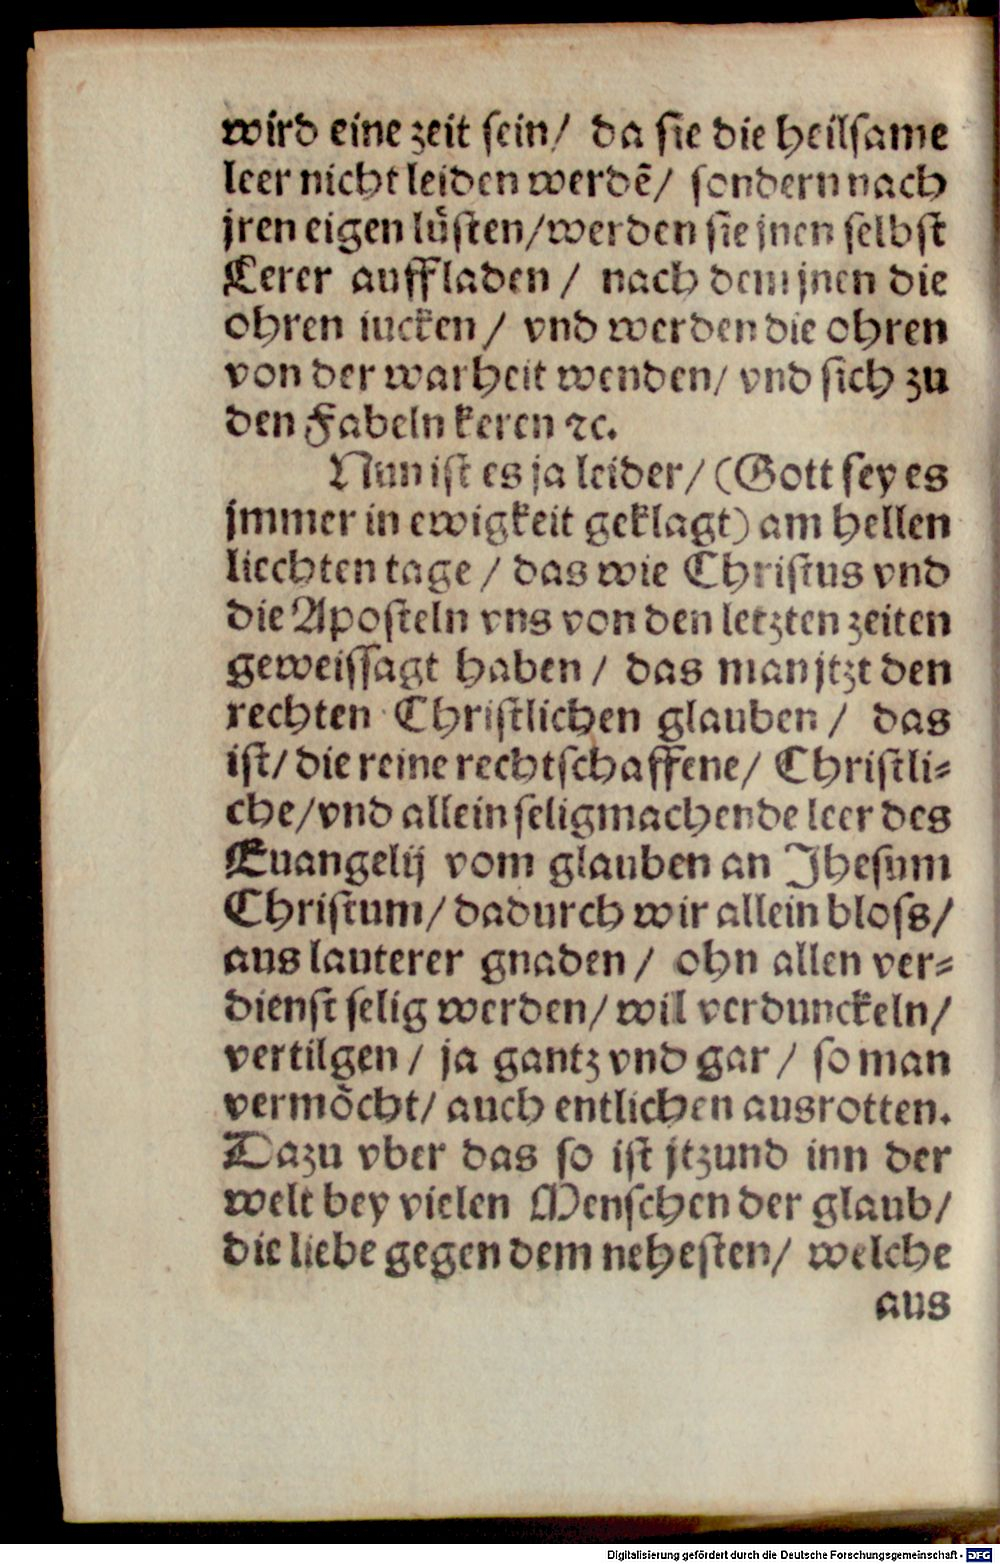 wird eine zeit sein/ da sie die heilsame
leer nicht leiden werdẽ/ sondern nach
jren eigen lüsten/werden sie jnen selbst
Lerer auffladen / nach dem jnen die
ohren iucken / vnd werden die ohren
von der warheit wenden/ vnd sich zu
den Fabeln keren ⁊c.
Nun ist es ja leider/ (Gott sey es
jmmer in ewigkeit geklagt) am hellen
liechten tage / das wie Christus vnd
die Aposteln vns von den letzten zeiten
geweissagt haben / das man jtzt den
rechten Christlichen glauben / das
ist/ die reine rechtschaffene/ Christli⸗
che/vnd allein seligmachende leer des
Euangelij vom glauben an Jhesum
Christum/ dadurch wir allein bloss/
aus lauterer gnaden / ohn allen ver⸗
dienst selig werden/ wil verdunckeln/
vertilgen / ja gantz vnd gar / so man
vermöcht/ auch entlichen ausrotten.
Dazu vber das so ist jtzund inn der
welt bey vielen Menschen der glaub/
die liebe gegen dem nehesten/ welche
aus
Digitalisierung gefördert durch die Deutsche Forschungsgemeinschaft - DFG